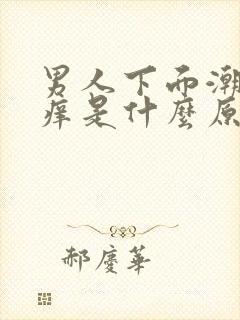 男人下面潮
痒是什麼原
郝慶華